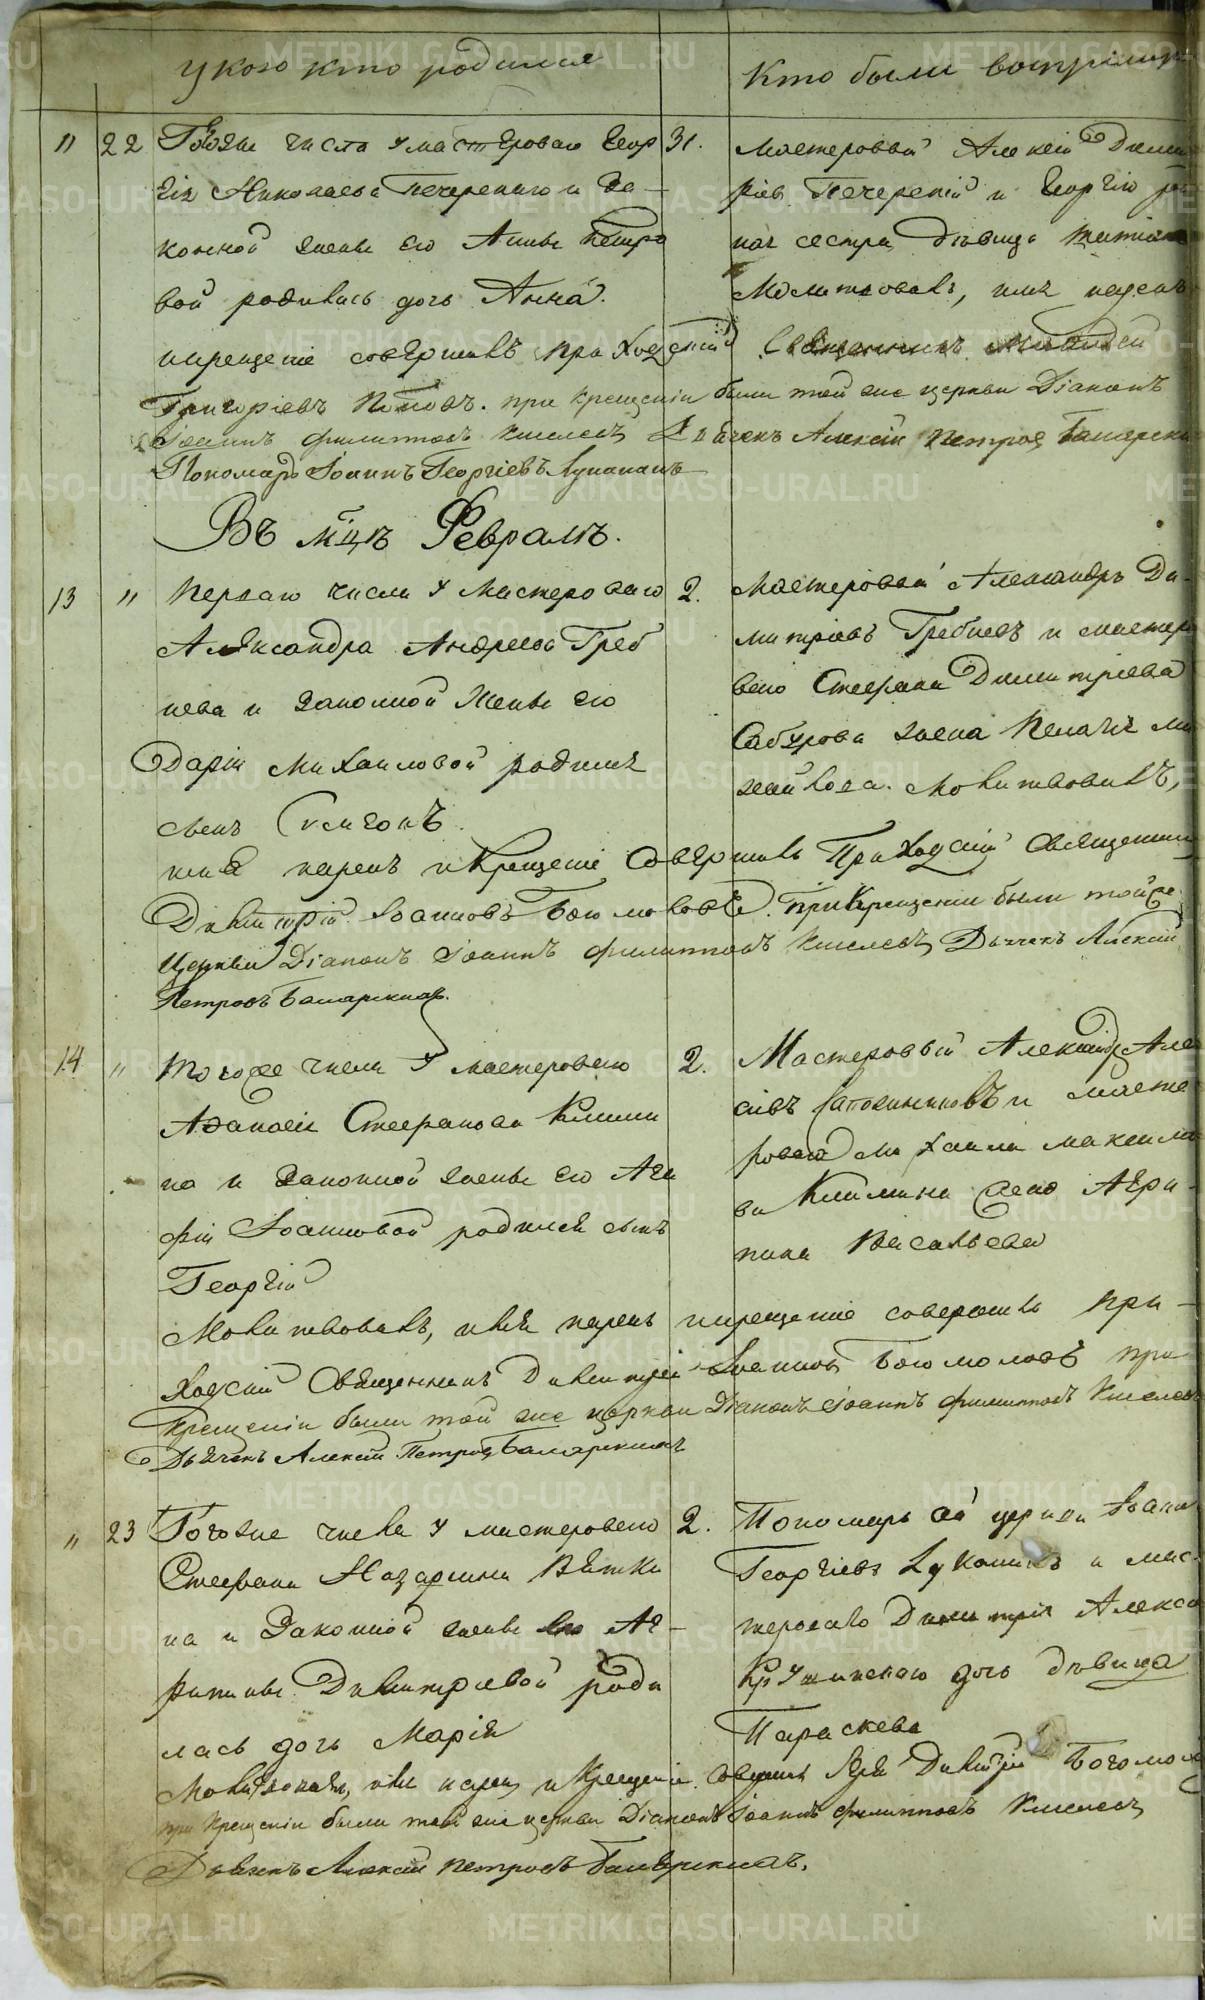 у кого кто родился
Кто были воспрiемн
" 22 Тогоже числа у мастероваго Геор 31.
гія Николаева Печерскаго и За-
конной жены его Анны Петро
вой родилась дочь Анна.
Мастеровый Алексій Дими
ріев Печерскій и Георгію род
ная сестра дѣвица
Молитвовалъ, имя нареч
и крещеніе совершилъ приходскій Священникъ
Григоріевъ Поповъ. при крещеніи были той же церкви Діаконъ
Іоаннъ Филипповъ Киселевъ Дьячекъ Алексій Петровъ
Пономарь Іоаннъ Георгіевъ Лукананъ
Въ мцѣ Февралѣ.
13 " Перваго числа у Мастероваго 2.
Александра Андреева Греб
нева и законной Жены его
Даріи Михаиловой родился
сынъ Симеонъ.
Мастеровый Александръ Ди-
митріевъ Гребневъ и мастеро
ваго Стефана Димитріева
Сабурова жена Пелагія Ми
хайлова. Молитвовалъ,
имя нареч и Крещеніе Совершилъ Приходскій Священник
Димитрій Іоанновъ Богомоловъ. При Крещеніи были тойже
Церкви Діаконъ Іоаннъ Филипповъ Киселевъ, Дьячекъ Алексій
Петровъ
14 " Тогоже числа У мастероваго 2.
Афанасія Стефанова Клими
на и законной жены его Ага
фіи Іоанновой родился сынъ
Георгій
Мастеровый Александръ Алек
сіевъ и масте
роваго Михаила Максимо
ва Климина жена Агри-
пина Васильева
Молитвовалъ, имя нареч и крещеніе совершилъ При-
ходскій Священникъ Димитрій Іоанновъ Богомоловъ при
Крещеніи были той же церкви Діаконъ Іоаннъ Филипповъ Киселевъ
Дьячекъ Алексій Петровъ
" 23 Тогоже числа у мастероваго 2.
Стефана Назарина Вятки
на и Законной жены его Аг-
рипины Димитріевой роди
лась дочь Марія
Пономарь сей церкви Іоанн
Георгіевъ и мас-
тероваго Димитрія Алекс
дочь дѣвица
Параскева
Молитвовалъ, имя нареч и Крещеніе Совершилъ Іерей Димитрій Богомол
при Крещеніи были той же церкви Діаконъ Іоаннъ Филипповъ Киселевъ
Дьячекъ Алексій Петровъ
METRIKI.GASO-URAL.RU